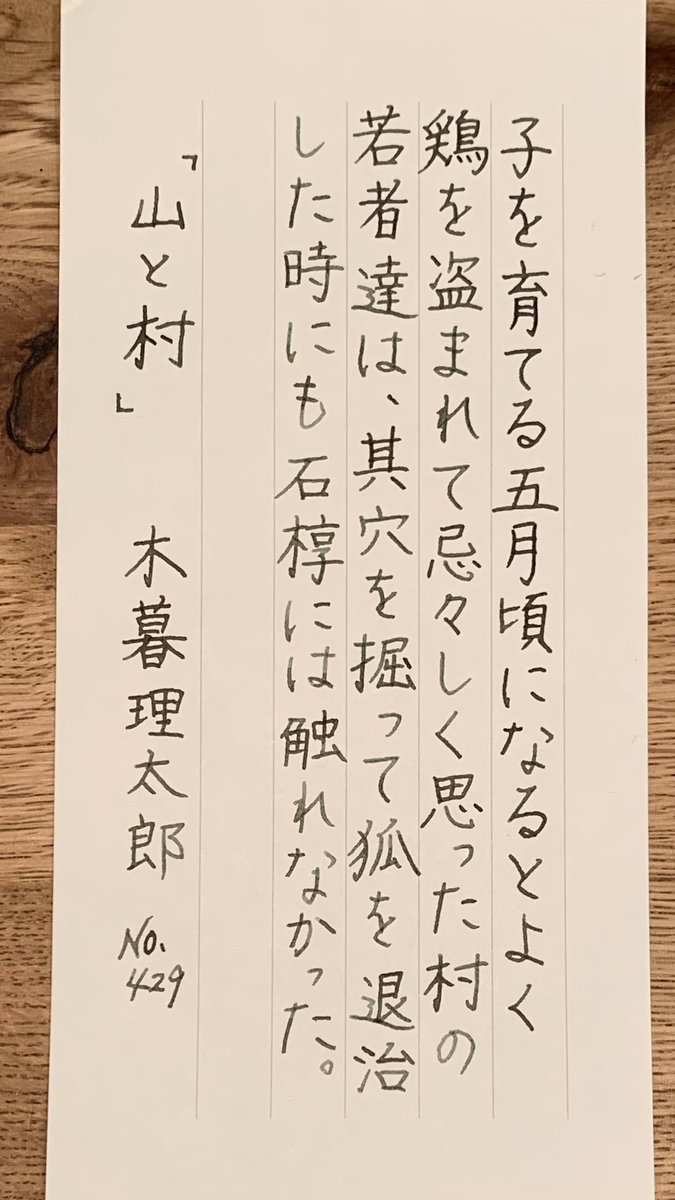 子を育てる五月頃になるとよく
鶏を盗まれて忌々しく思った村の
若者達は、其穴を掘って狐を退治
した時にも石椁には触れなかった。
「山と村」 木暮理太郎
No.
429